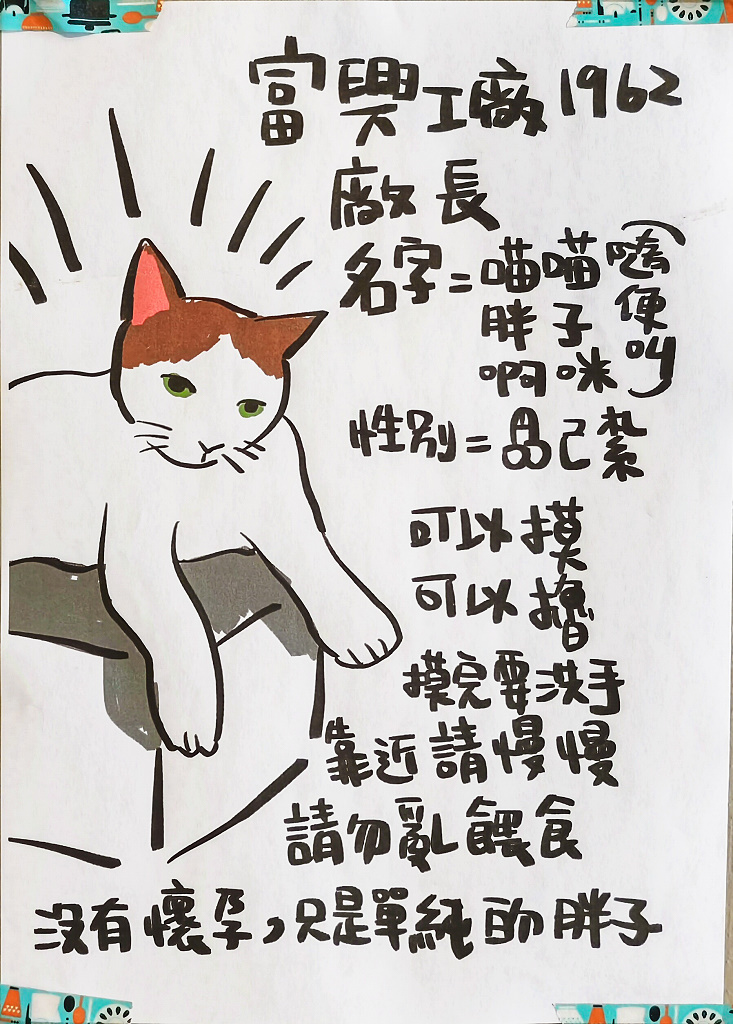 富興工廠1962
廠長
名字=喵喵
胖子
啊咪
(隨便叫)
性別=已紮
可以摸
可以擼
摸完要洗手
靠近請慢慢
請勿亂餵食
沒有懷孕,只是單純的胖子